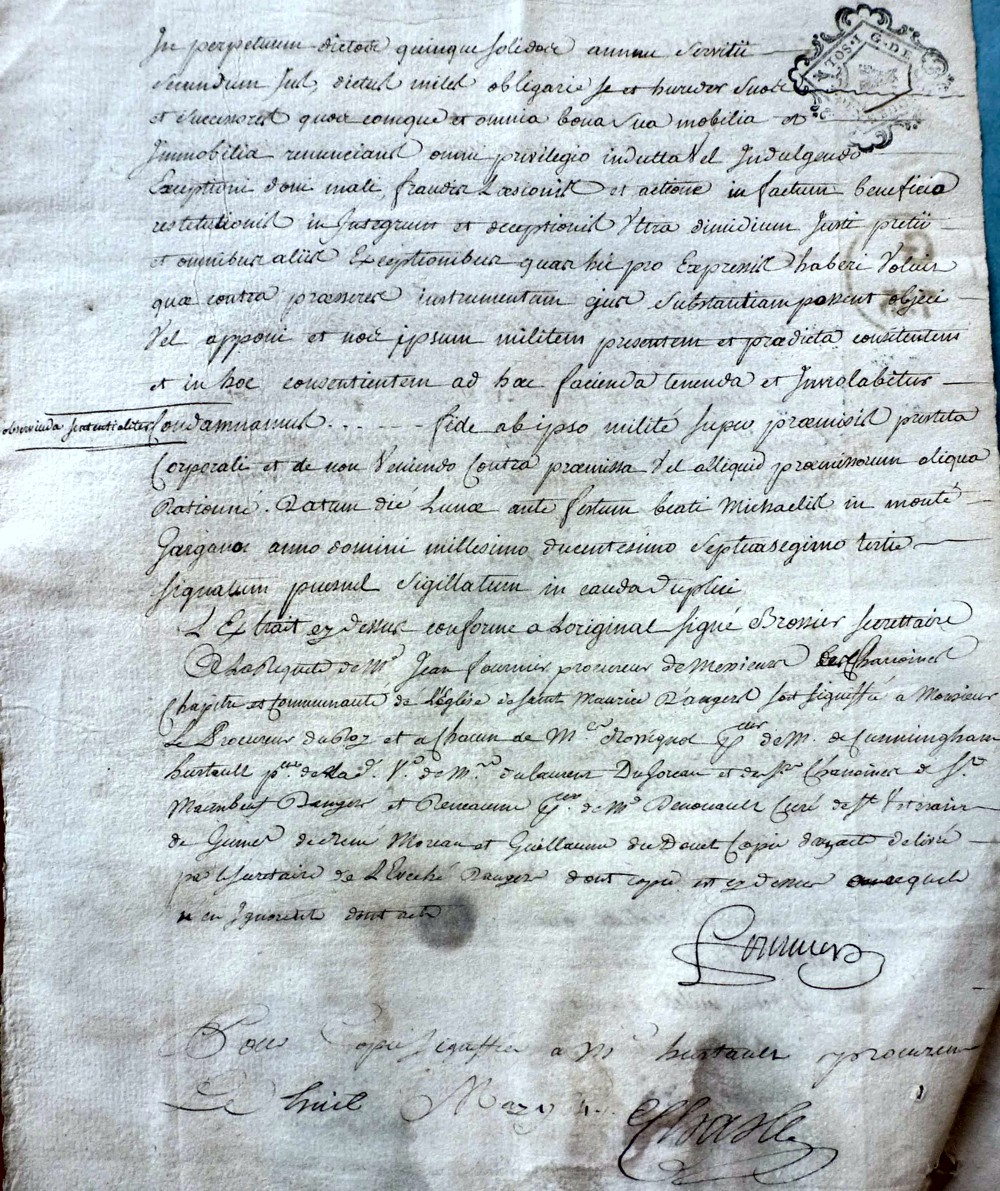 G. DE
1. SOL 4
In perpetuum dictos quinque solidos annui servitii
secundum Jus, dictus miles obligavit se et hæredes suos
et successores quos comque et omnia bona sua mobilia et
Immobilia renuncians omni privilegio indutta Vel Indulgendo
Exceptioni doni mali, fraudis Læsionis et actione in factum beneficio
restitutionis in Integrum et deceptionis Ultra dimidium Justi pretii
et omnibus aliis Exceptionibus quas hic pro Expressis haberi Voluit
quæ contra præsens instrumentum ejus substantiam possent objici
Vel apponi et nos ipsum militem presentem et prædicta confitentem
et in hoc consentientem ad hæc facienda tenenda et Inviolabiter
observanda sententialiter Condamnamus . . . . . fide ab ipso milité super præmissis prestita
Corporali et de non Veniendo Contra præmissa Vel alliquid præmissorum aliqua
Rationné. Datum dié Lunæ ante festum beati Michaelis in monté
Gargano anno domini millesimo ducentesimo septuasegimo tertio
signatum sigillatum in cauda duplici
L'Extrait cy dessus conforme a Loriginal signé Brossier secrettaire
A La Requete de Me. Jean fournier procureur de Messieurs les Chanoines
Chapitre et Communauté de L'Eglise de saint Maurice D'angers soit signiffié a Monsieur
Le Procureur du Roy et a Chacun de Me. Rossignol de M. de Cunningham
hurtault de la d. Ve. de Me. du laurent et de Srs. Chanoines de St.
Maimbeuf Dangers et de Me Renouault Curé de St
de René Moreau et Guillaume du Douet Copie de lacte delivré
par le secretaire de L'Evéché Dangers dont copie est cy dessus
n'en Ignorent dont acte
Fournier
Pour Copie signiffiée a Me hurtault procureur
Le huit
Chasle